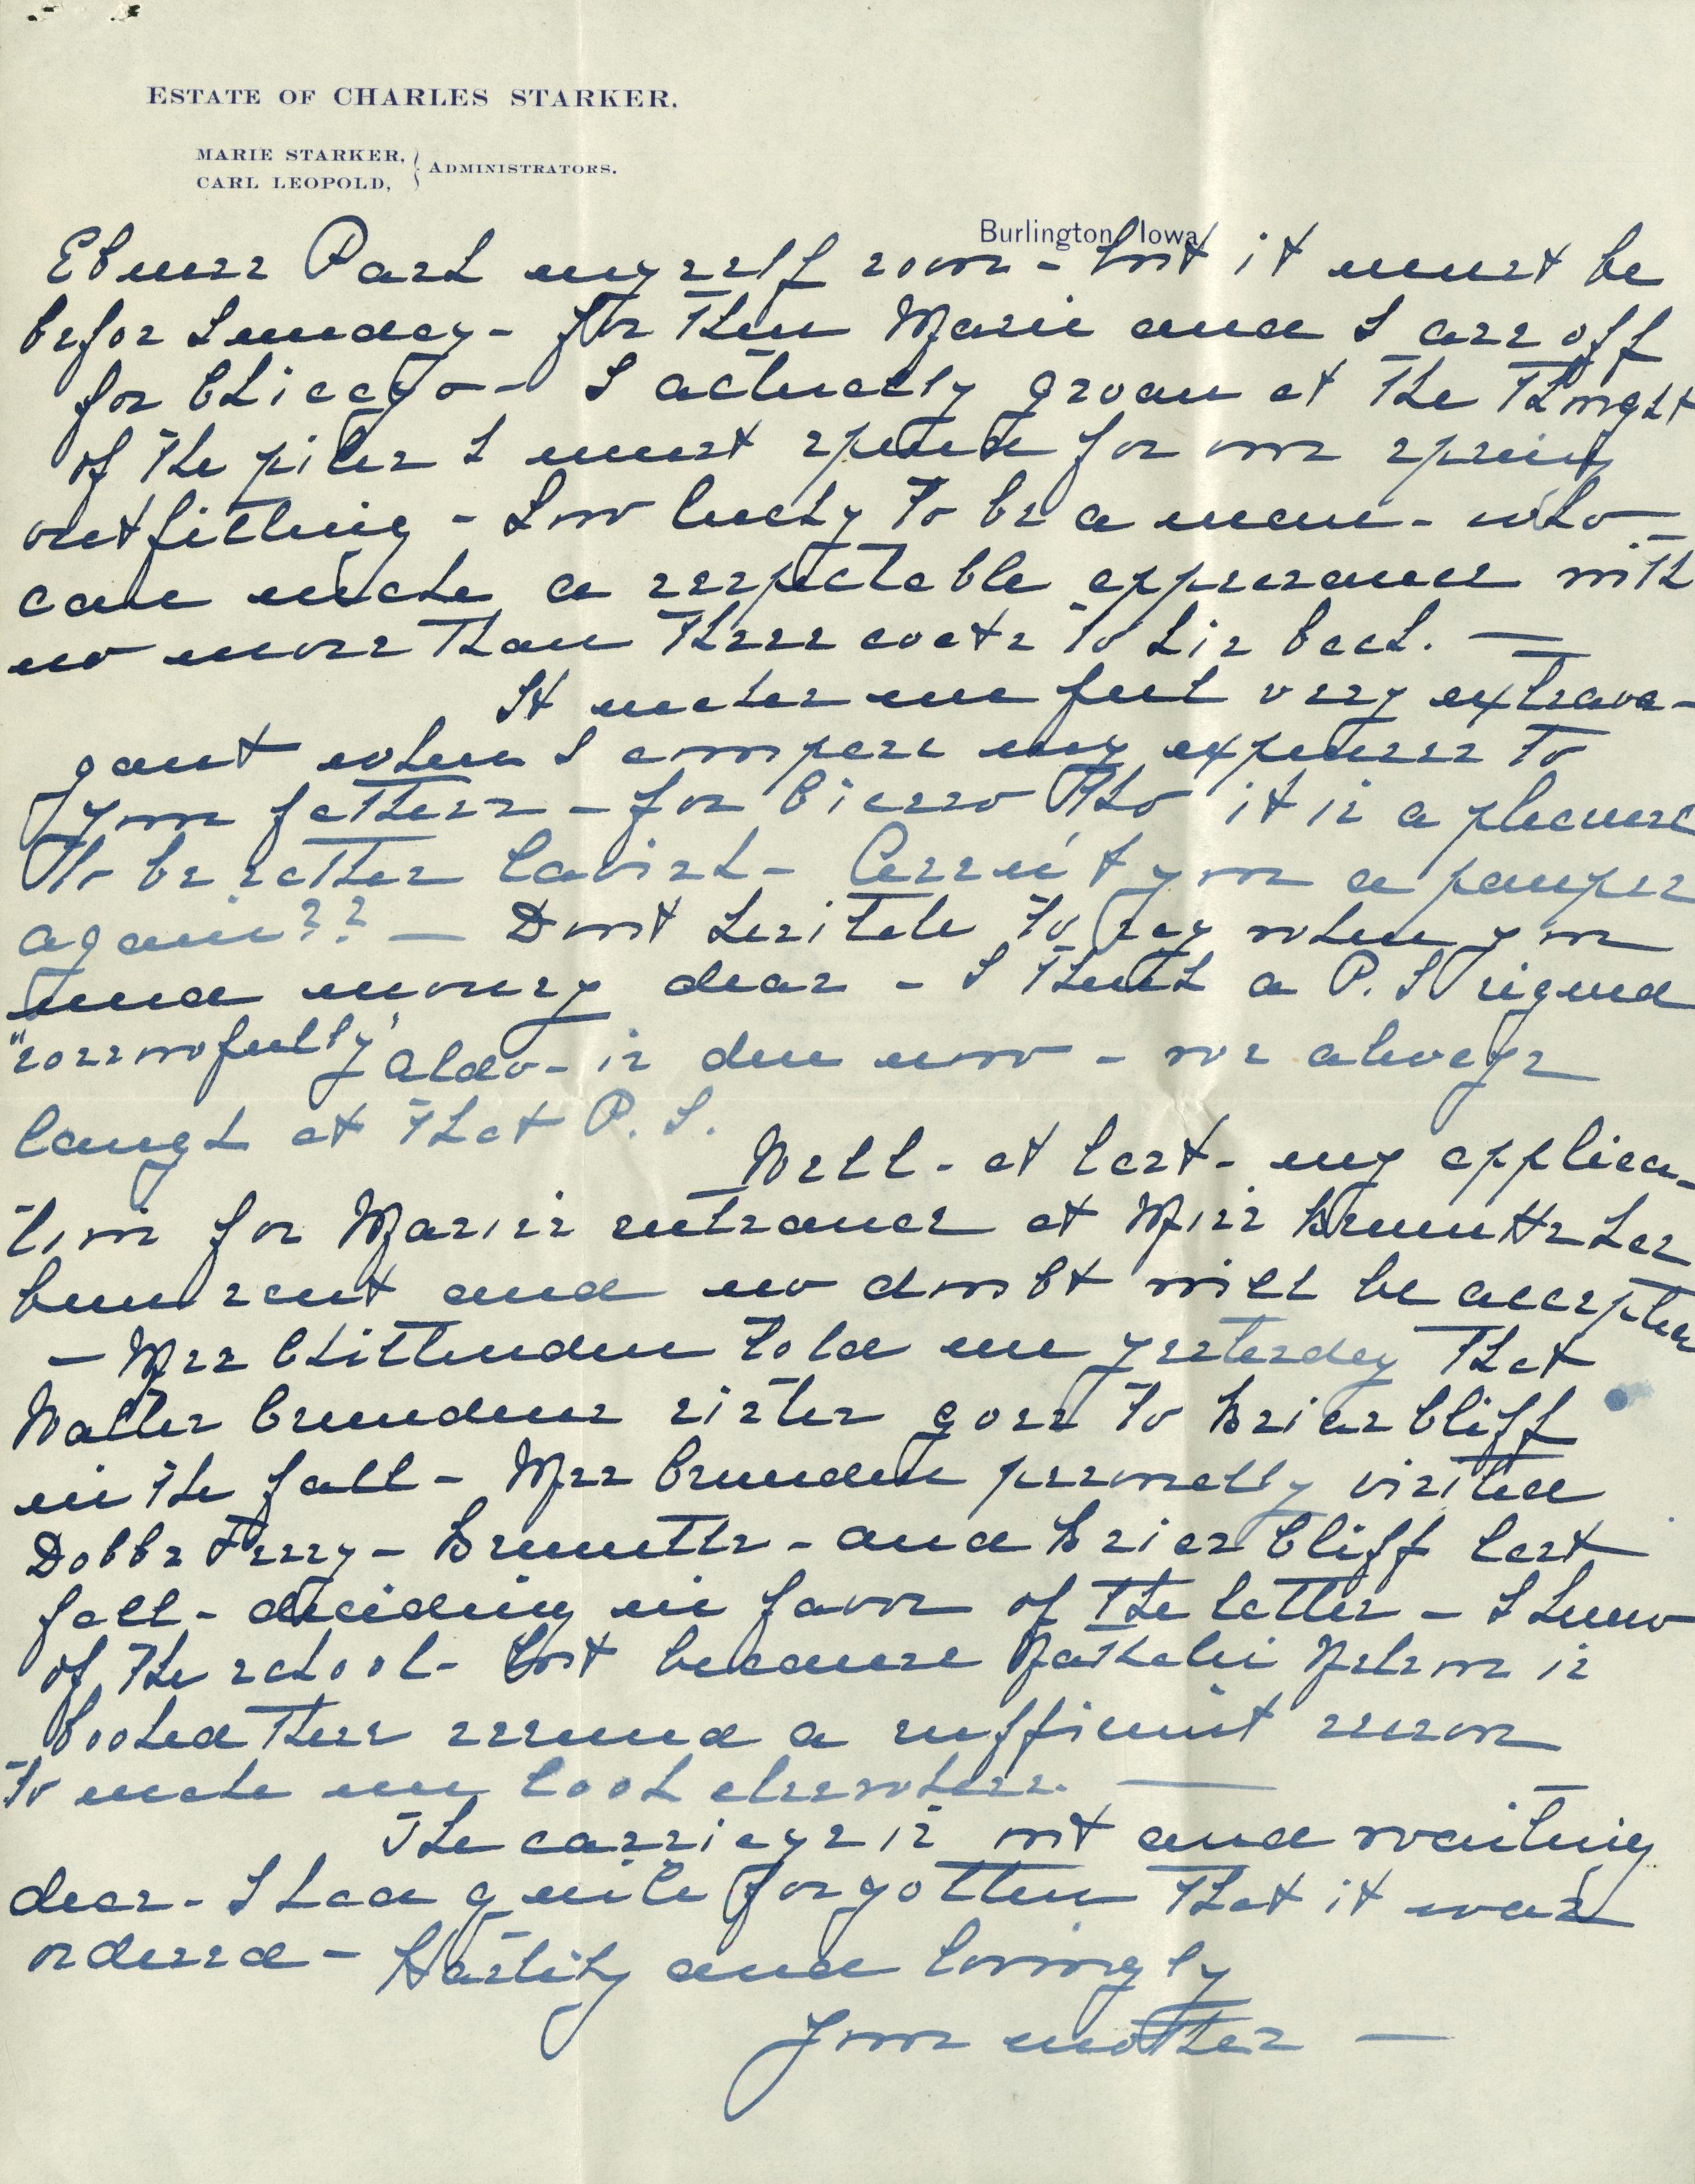 ESTATE OF CHARLES STARKER.
MARIE STARKER,
CARL LEOPOLD,
ADMINISTRATORS.
Burlington, Iowa
Park myself soon - but it must be
befor Sunday - for then Marie and I are off
for Chicago - I actually groan at the thought
of the piles I must spend for our spring
outfitting - how lucky to be a man - who
can make a respectable apperance with
no more than three coats to his back. —
It makes me feel very extrava-
gant when I compare my expenses to
your fathers - for tho it is a pleasure
to be rather lavish - Arren't you a pauper
again?? — Dont hesitate to say when you
need money dear - I think a P.S signed
"sorrowfully" Aldo - is due now - we always
laugh at that P.S.
Well - at last - my applica-
tion for Maries entrance at Miss Bennetts has
been sent and no doubt will be accepted
— Mrs Chittenden told me yesterday that
Walter Crundens sister goes to Briar Cliff
in the fall - Mrs Crunden personally visited
Dobbs Ferry - Bennetts - and Briar Cliff last
fall - deciding in favor of the latter - I knew
of the school - but because is
booked there seemed a suffient reason
to make me look elsewhere. —
The carriage is out and waiting
dear - I had quite forgotten that it was
ordered - Hastily and lovingly
Your mother —